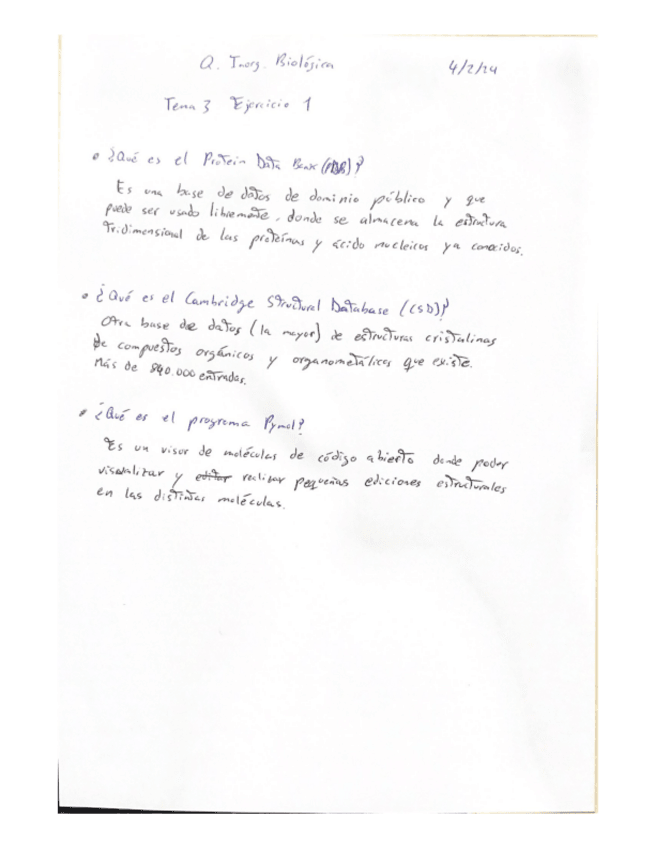 Q. Inorg. Biológica 4/2/24
Tema 3 Ejercicio 1
• ¿Qué es el Protein Data Bank (PDB)?
Es una base de datos de dominio público y que
puede ser usado libremente, donde se almacena la estructura
tridimensional de las proteínas y ácido nucleicos ya conocidos.
• ¿Qué es el Cambridge Structural Database (CSD)?
Otra base de datos (la mayor) de estructuras cristalinas
de compuestos orgánicos y organometálicos que existe.
Más de 890.000 entradas.
• ¿Qué es el programa Pymol?
Es un visor de moléculas de código abierto donde poder
visualizar y editar realizar pequeñas ediciones estructurales
en las distintas moléculas.